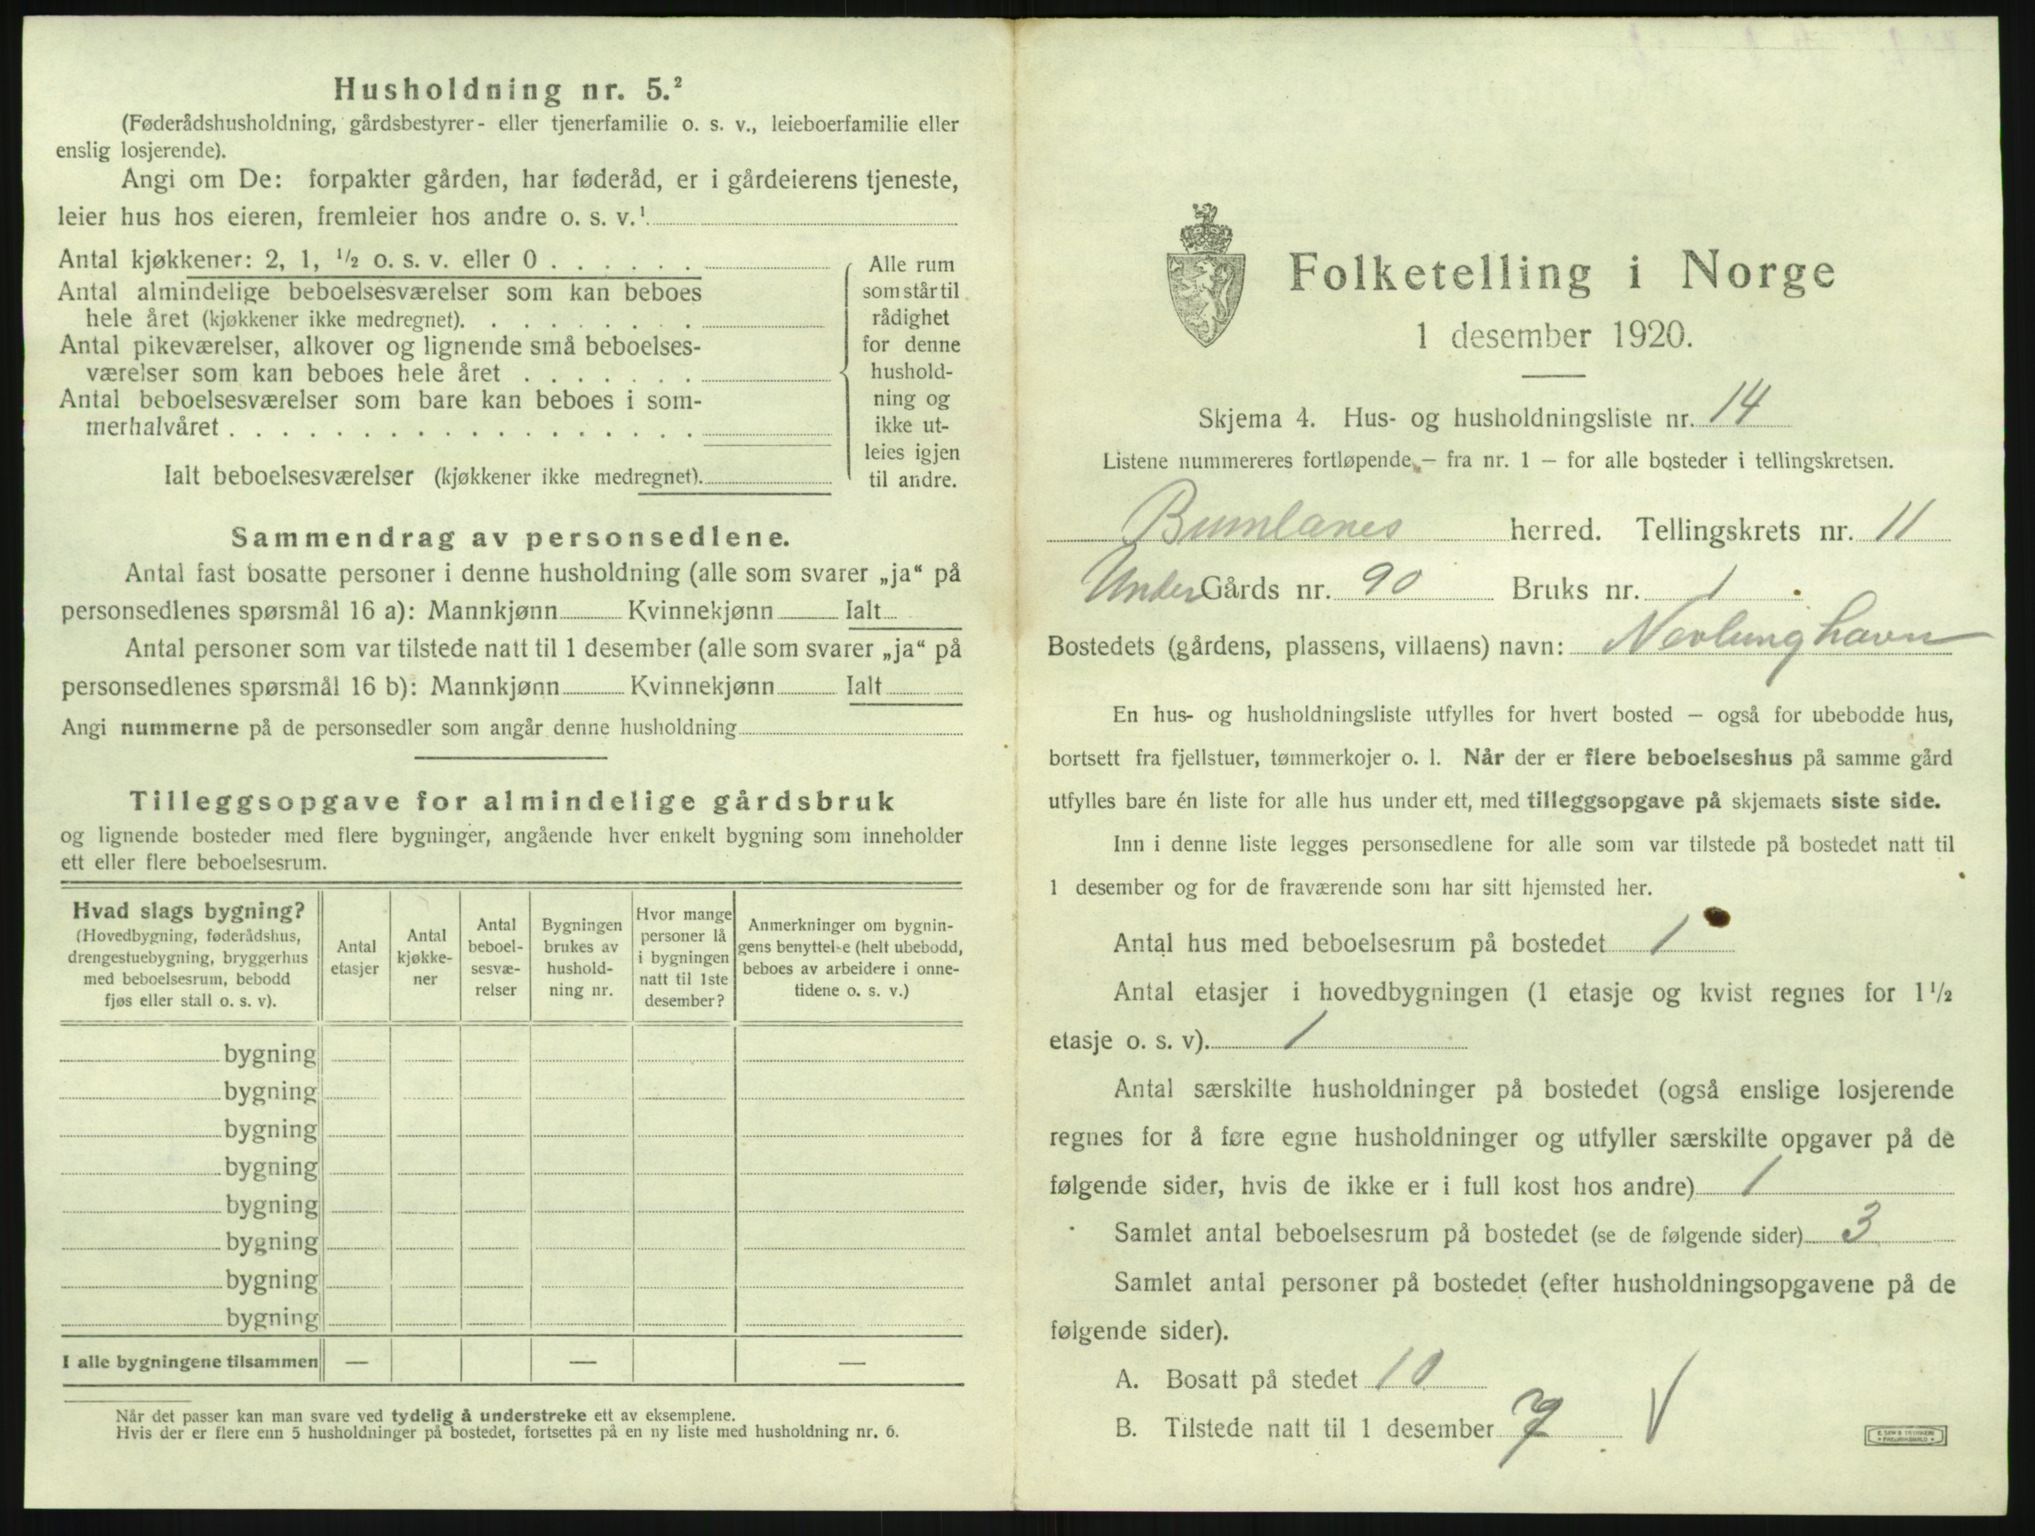 Husholdning nr. 5.²
(Føderådshusholdning, gårdsbestyrer- eller tjenerfamilie o. s. v., leieboerfamilie eller
enslig losjerende).
Angi om De: forpakter gården, har føderåd, er i gårdeierens tjeneste,
leier hus hos eieren, fremleier hos andre o. s. v.¹
Antal kjøkkener: 2, 1, ½ o. s. v. eller 0 . . . . . .
Antal almindelige beboelsesværelser som kan beboes
hele året (kjøkkener ikke medregnet). . . . . . . . .
Antal pikeværelser, alkover og lignende små beboelses-
værelser som kan beboes hele året . . . . . . .
Antal beboelsesværelser som bare kan beboes i som-
merhalvåret . . . . . . . . . . . . . . . . . .
Ialt beboelsesværelser (kjøkkener ikke medregnet).
Alle rum
som står til
rådighet
for denne
hushold-
ning og
ikke ut-
leies igjen
til andre.
Sammendrag av personsedlene.
Antal fast bosatte personer i denne husholdning (alle som svarer „ja“ på
personsedlenes spørsmål 16 a): Mannkjønn Kvinnekjønn Ialt
Antal personer som var tilstede natt til 1 desember (alle som svarer „ja“ på
personsedlenes spørsmål 16 b): Mannkjønn Kvinnekjønn Ialt
Angi nummerne på de personsedler som angår denne husholdning
Tilleggsopgave for almindelige gårdsbruk
og lignende bosteder med flere bygninger, angående hver enkelt bygning som inneholder
ett eller flere beboelsesrum.
Hvad slags bygning?
(Hovedbygning, føderådshus,
drengestuebygning, bryggerhus
med beboelsesrum, bebodd
fjøs eller stall o. s. v).
Antal
etasjer
Antal
kjøkke-
ner
Antal
beboel-
sesvæ-
relser
Bygningen
brukes av
hushold-
ning nr.
Hvor mange
personer lå
i bygningen
natt til 1ste
desember?
Anmerkninger om bygnin-
gens benyttelse (helt ubebodd,
beboes av arbeidere i onne-
tidene o. s. v.)
bygning
bygning
bygning
bygning
bygning
bygning
bygning
bygning
I alle bygningene tilsammen — — —
Når det passer kan man svare ved tydelig å understreke ett av eksemplene.
Hvis der er flere enn 5 husholdninger på bostedet, fortsettes på en ny liste med husholdning nr. 6.
Folketelling i Norge
1 desember 1920.
Skjema 4. Hus- og husholdningsliste nr. 14
Listene nummereres fortløpende – fra nr. 1 – for alle bosteder i tellingskretsen.
Brunlanes herred. Tellingskrets nr. 11
Under Gårds nr. 90 Bruks nr. 1
Bostedets (gårdens, plassens, villaens) navn: Nevlunghavn
En hus- og husholdningsliste utfylles for hvert bosted – også for ubebodde hus,
bortsett fra fjellstuer, tømmerkojer o. l. Når der er flere beboelseshus på samme gård
utfylles bare én liste for alle hus under ett, med tilleggsopgave på skjemaets siste side.
Inn i denne liste legges personsedlene for alle som var tilstede på bostedet natt til
1 desember og for de fraværende som har sitt hjemsted her.
Antal hus med beboelsesrum på bostedet 1
Antal etasjer i hovedbygningen (1 etasje og kvist regnes for 1 ½
etasje o. s. v). 1
Antal særskilte husholdninger på bostedet (også enslige losjerende
regnes for å føre egne husholdninger og utfyller særskilte opgaver på de
følgende sider, hvis de ikke er i full kost hos andre) 1
Samlet antal beboelsesrum på bostedet (se de følgende sider) 3
Samlet antal personer på bostedet (efter husholdningsopgavene på de
følgende sider).
A. Bosatt på stedet 10
B. Tilstede natt til 1 desember 7 V